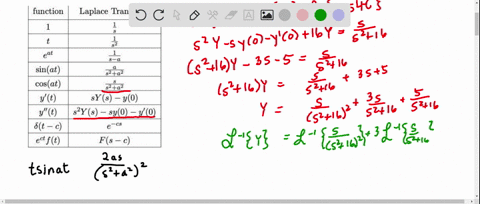 function Laplace Tran
1 1/s
t 1/s²
e^{at} 1/(s-a)
sin(at) a/(s²+a²)
cos(at) s/(s²+a²)
y'(t) sY(s) - y(0)
y''(t) s²Y(s) - sy(0) - y'(0)
δ(t-c) e^{-cs}
e^{ct}f(t) F(s-c)
tsinat 2as/(s²+a²)²
s²Y-sy(0)-y'(0)+16Y = s/(s²+16)
(s²+16)Y - 3s - 5 = s/(s²+16)
(s²+16)Y = s/(s²+16) + 3s+5
Y = s/(s²+16)² + 3s/(s²+16) + 5/(s²+16)
ℒ⁻¹{Y} = ℒ⁻¹{s/(s²+16)²} + 3ℒ⁻¹{s/(s²+16)}